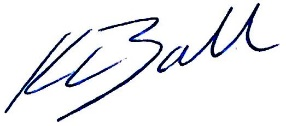 K Ball